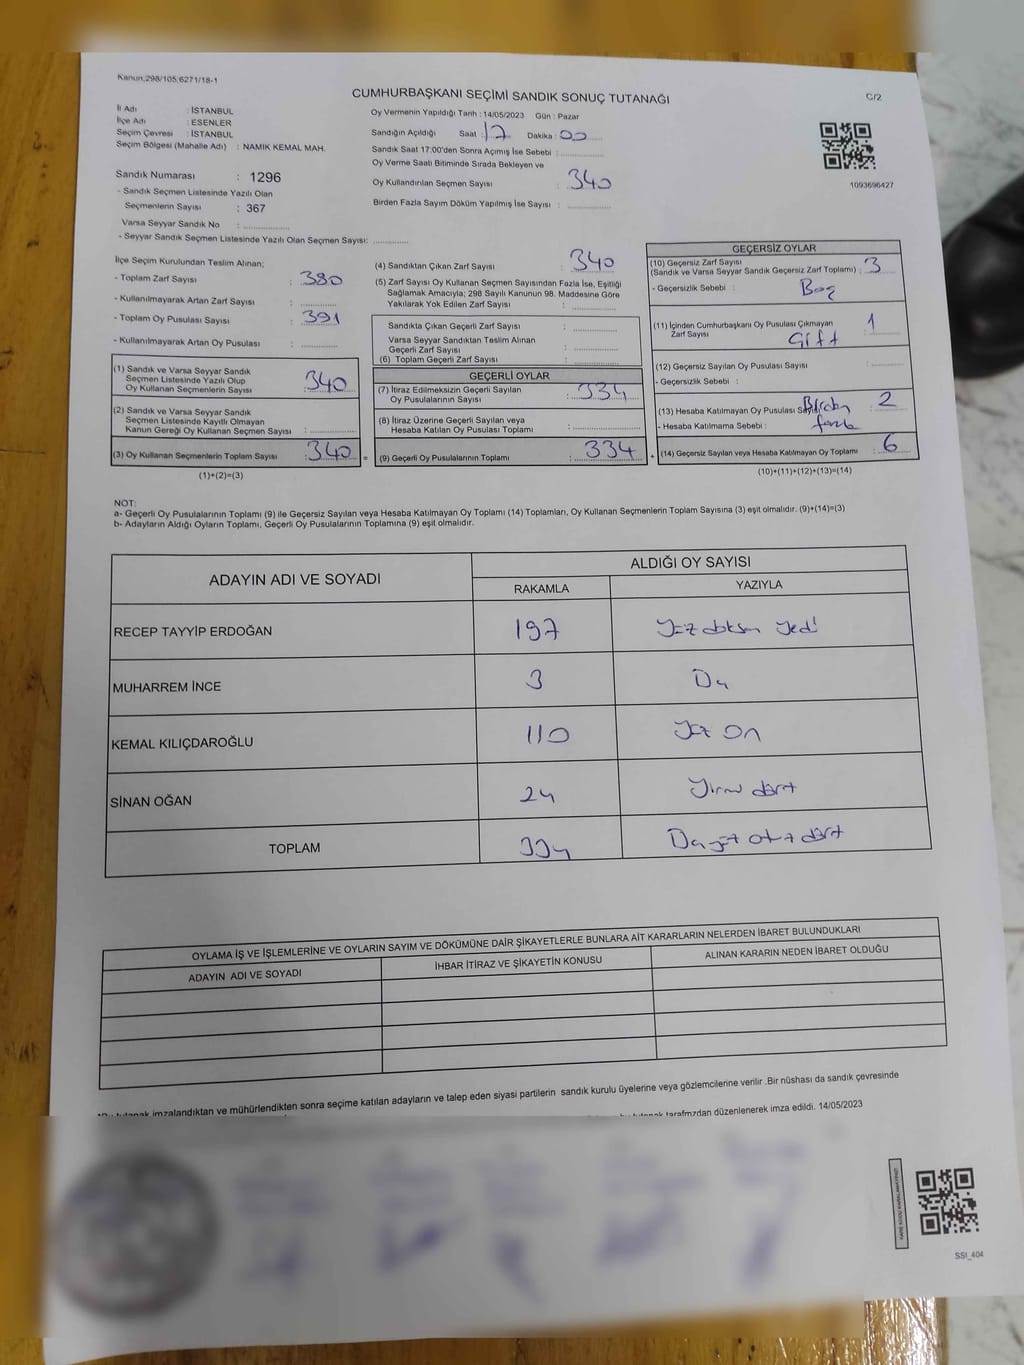 Kanun,298/105,6271/18-1
CUMHURBAŞKANI SEÇİMİ SANDIK SONUÇ TUTANAĞI
C/2
İl Adı : İSTANBUL
İlçe Adı : ESENLER
Seçim Çevresi : İSTANBUL
Seçim Bölgesi (Mahalle Adı) : NAMIK KEMAL MAH.
Sandık Numarası : 1296
- Sandık Seçmen Listesinde Yazılı Olan
Seçmenlerin Sayısı : 367
Varsa Seyyar Sandık No :
- Seyyar Sandık Seçmen Listesinde Yazılı Olan Seçmen Sayısı:
Oy Vermenin Yapıldığı Tarih : 14/05/2023 Gün : Pazar
Sandığın Açıldığı Saat : 17 Dakika : 00
Sandık Saat 17:00'den Sonra Açımış İse Sebebi :
Oy Verme Saati Bitiminde Sırada Bekleyen ve
Oy Kullandırılan Seçmen Sayısı : 340
Birden Fazla Sayım Döküm Yapılmış İse Sayısı :
1093696427
İlçe Seçim Kurulundan Teslim Alınan;
- Toplam Zarf Sayısı : 380
- Kullanılmayarak Artan Zarf Sayısı :
- Toplam Oy Pusulası Sayısı : 391
- Kullanılmayarak Artan Oy Pusulası :
(1) Sandık ve Varsa Seyyar Sandık
Seçmen Listesinde Yazılı Olup
Oy Kullanan Seçmenlerin Sayısı : 340
(2) Sandık ve Varsa Seyyar Sandık
Seçmen Listesinde Kayıtlı Olmayan
Kanun Gereği Oy Kullanan Seçmen Sayısı :
(3) Oy Kullanan Seçmenlerin Toplam Sayısı : 340 =
(1)+(2)=(3)
(4) Sandıktan Çıkan Zarf Sayısı : 340
(5) Zarf Sayısı Oy Kullanan Seçmen Sayısından Fazla İse, Eşitliği
Sağlamak Amacıyla; 298 Sayılı Kanunun 98. Maddesine Göre
Yakılarak Yok Edilen Zarf Sayısı :
Sandıkta Çıkan Geçerli Zarf Sayısı :
Varsa Seyyar Sandıktan Teslim Alınan
Geçerli Zarf Sayısı :
(6) Toplam Geçerli Zarf Sayısı :
GEÇERLİ OYLAR
(7) İtiraz Edilmeksizin Geçerli Sayılan
Oy Pusulalarının Sayısı : 334
(8) İtiraz Üzerine Geçerli Sayılan veya
Hesaba Katılan Oy Pusulası Toplamı :
(9) Geçerli Oy Pusulalarının Toplamı : 334 +
GEÇERSİZ OYLAR
(10) Geçersiz Zarf Sayısı
(Sandık ve Varsa Seyyar Sandık Geçersiz Zarf Toplamı) : 3
- Geçersizlik Sebebi : Boş
(11) İçinden Cumhurbaşkanı Oy Pusulası Çıkmayan
Zarf Sayısı : 1
Çift
(12) Geçersiz Sayılan Oy Pusulası Sayısı :
- Geçersizlik Sebebi :
(13) Hesaba Katılmayan Oy Pusulası Sayısı 2
- Hesaba Katılmama Sebebi : Birden
fazla
(14) Geçersiz Sayılan veya Hesaba Katılmayan Oy Toplamı : 6
(10)+(11)+(12)+(13)=(14)
NOT:
a- Geçerli Oy Pusulalarının Toplamı (9) ile Geçersiz Sayılan veya Hesaba Katılmayan Oy Toplamı (14) Toplamları, Oy Kullanan Seçmenlerin Toplam Sayısına (3) eşit olmalıdır. (9)+(14)=(3)
b- Adayların Aldığı Oyların Toplamı, Geçerli Oy Pusulalarının Toplamına (9) eşit olmalıdır.
ADAYIN ADI VE SOYADI
ALDIĞI OY SAYISI
RAKAMLA YAZIYLA
RECEP TAYYİP ERDOĞAN 197 Yüz doksan yedi
MUHARREM İNCE 3 Üç
KEMAL KILIÇDAROĞLU 110 Yüz On
SİNAN OĞAN 24 Yirmi dört
TOPLAM 334 Üçyüz otuz dört
OYLAMA İŞ VE İŞLEMLERİNE VE OYLARIN SAYIM VE DÖKÜMÜNE DAİR ŞİKAYETLERLE BUNLARA AİT KARARLARIN NELERDEN İBARET BULUNDUKLARI
ADAYIN ADI VE SOYADI İHBAR İTİRAZ VE ŞİKAYETİN KONUSU ALINAN KARARIN NEDEN İBARET OLDUĞU
tutanak imzalandıktan ve mühürlendikten sonra seçime katılan adayların ve talep eden siyasi partilerin sandık kurulu üyelerine veya gözlemcilerine verilir .Bir nüshası da sandık çevresinde
tutanak tarafımızdan düzenlenerek imza edildi. 14/05/2023
SSI_404